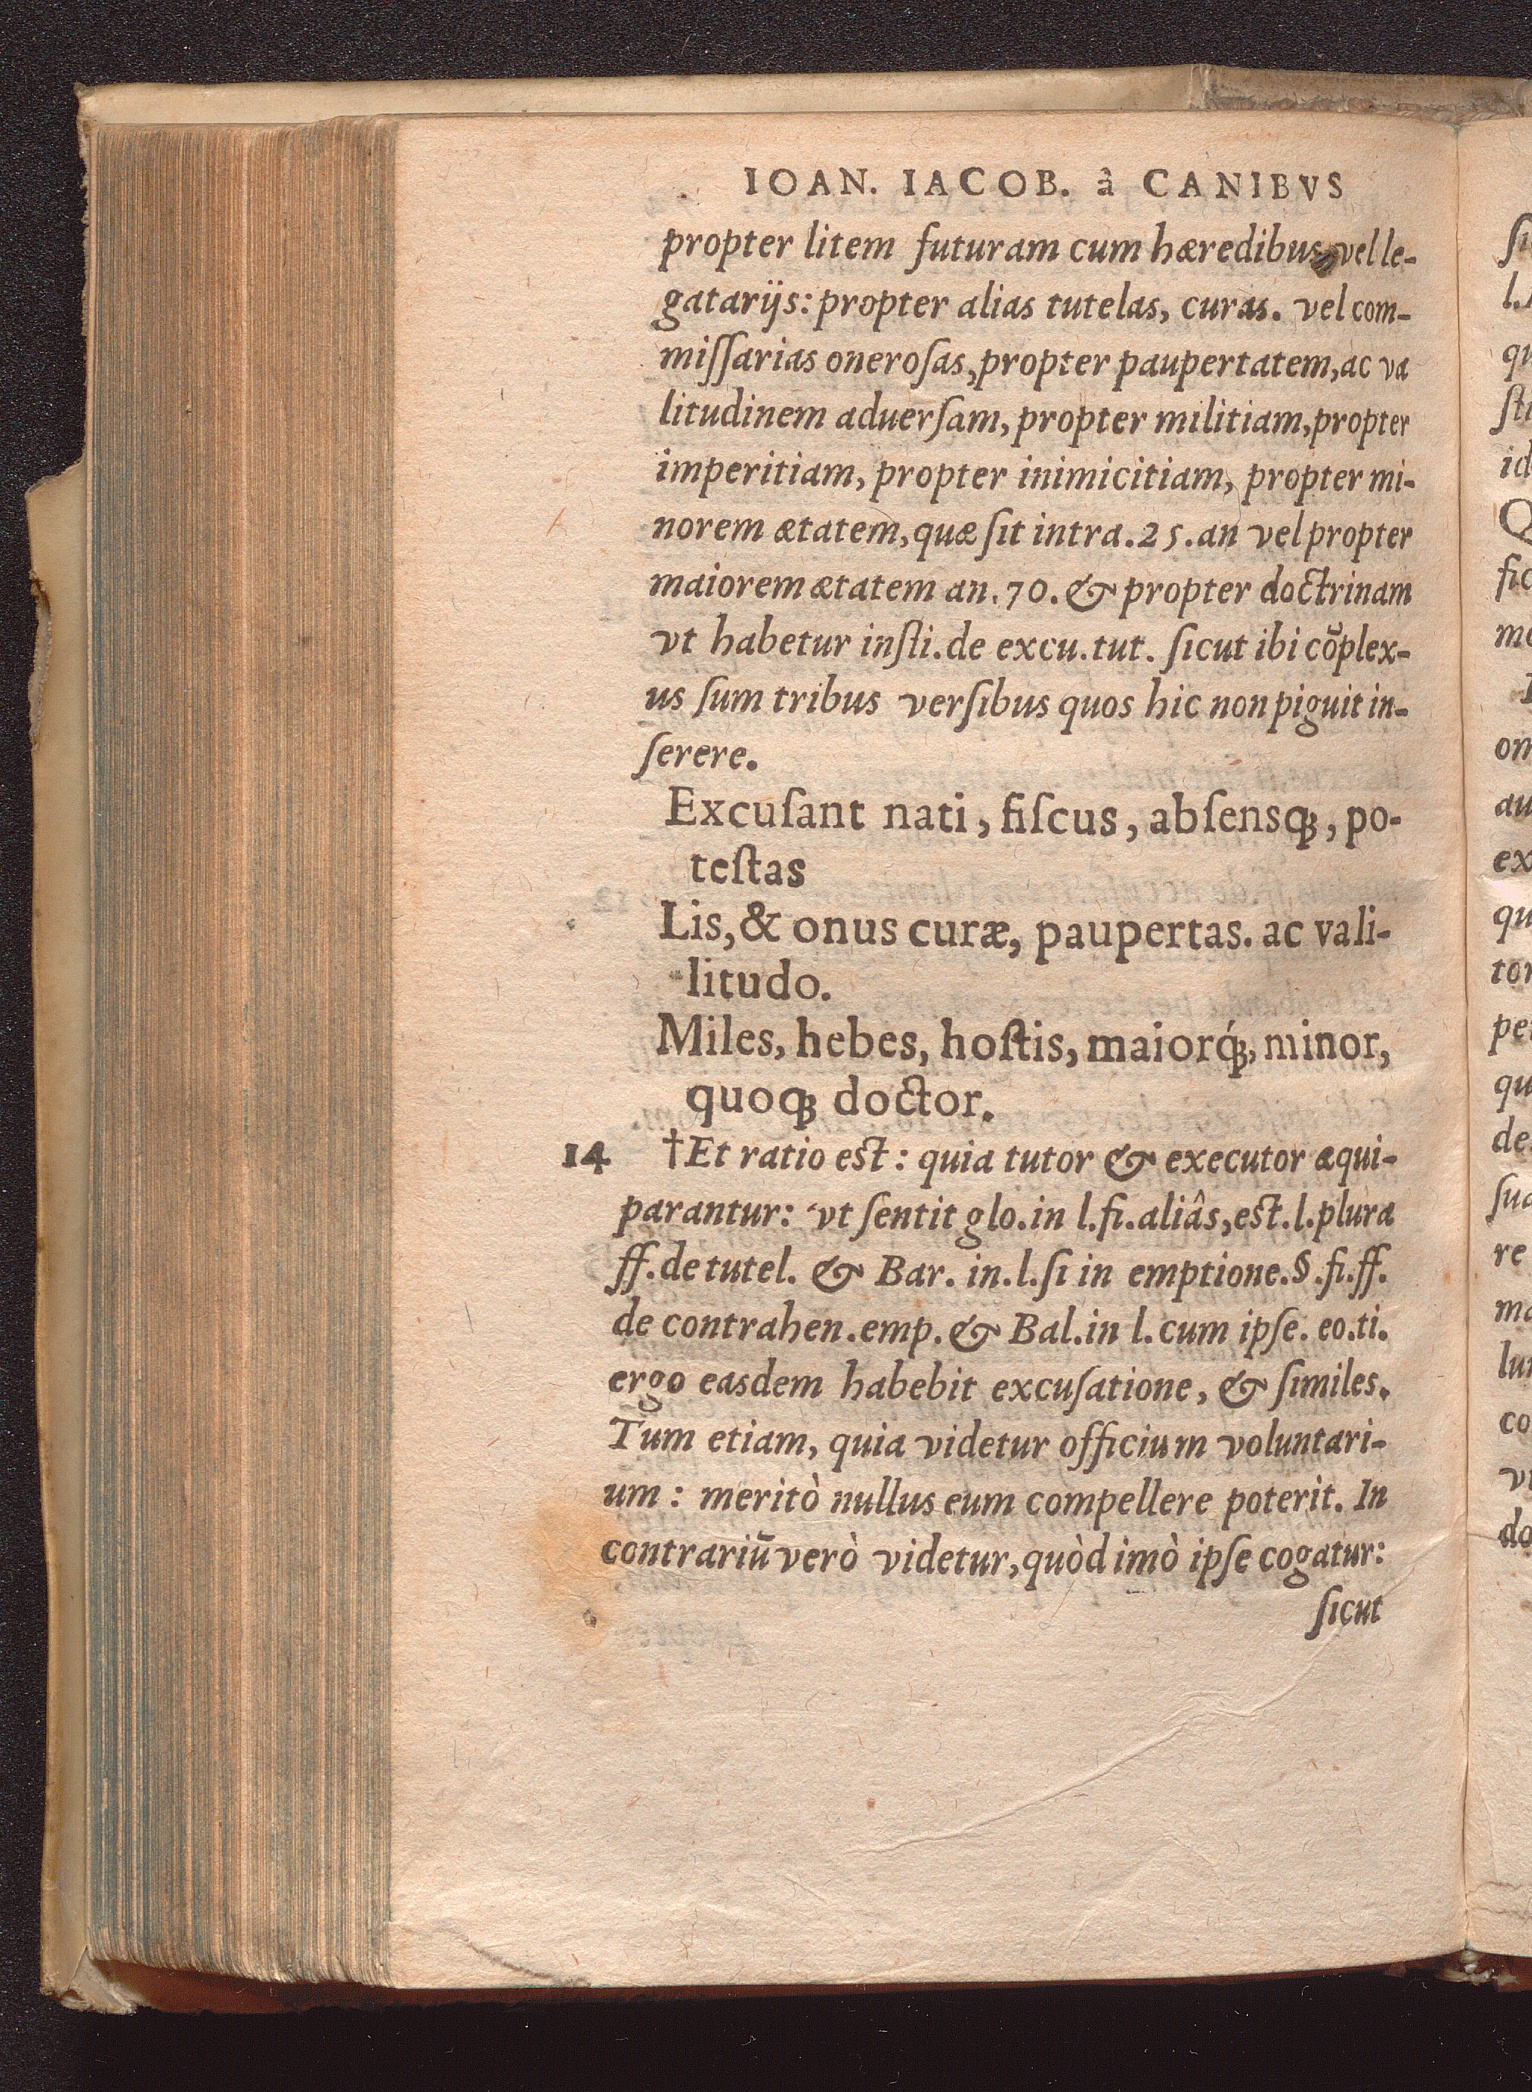 IOAN. IACOB. à CANIBVS
propter litem futuram cum hæredibus, vel le-
gatarijs: propter alias tutelas, curas. vel com-
miſſarias oneroſas, propter paupertatem, ac va
litudinem aduerſam, propter militiam, propter
imperitiam, propter inimicitiam, propter mi-
norem ætatem, quæ ſit intra. 25. an vel propter
maiorem ætatem an. 70. & propter doctrinam
vt habetur inſti. de excu. tut. ſicut ibi cõplex-
us ſum tribus verſibus quos hic non piguit in-
ſerere.
Excuſant nati, fiſcus, abſensq́;, po-
teſtas
Lis, & onus curæ, paupertas. ac vali-
litudo.
Miles, hebes, hoſtis, maiorq́;, minor,
quoq; doctor.
14 †Et ratio eſt: quia tutor & executor æqui-
parantur: vt ſentit glo. in l. fi. aliâs, eſt. l. plura
ff. de tutel. & Bar. in. l. ſi in emptione. §. fi. ff.
de contrahen. emp. & Bal. in l. cum ipſe. eo. ti.
ergo easdem habebit excuſatione, & ſimiles.
Tum etiam, quia videtur officium voluntari-
um: meritò nullus eum compellere poterit. In
contrariū verò videtur, quòd imò ipſe cogatur:
ſicut